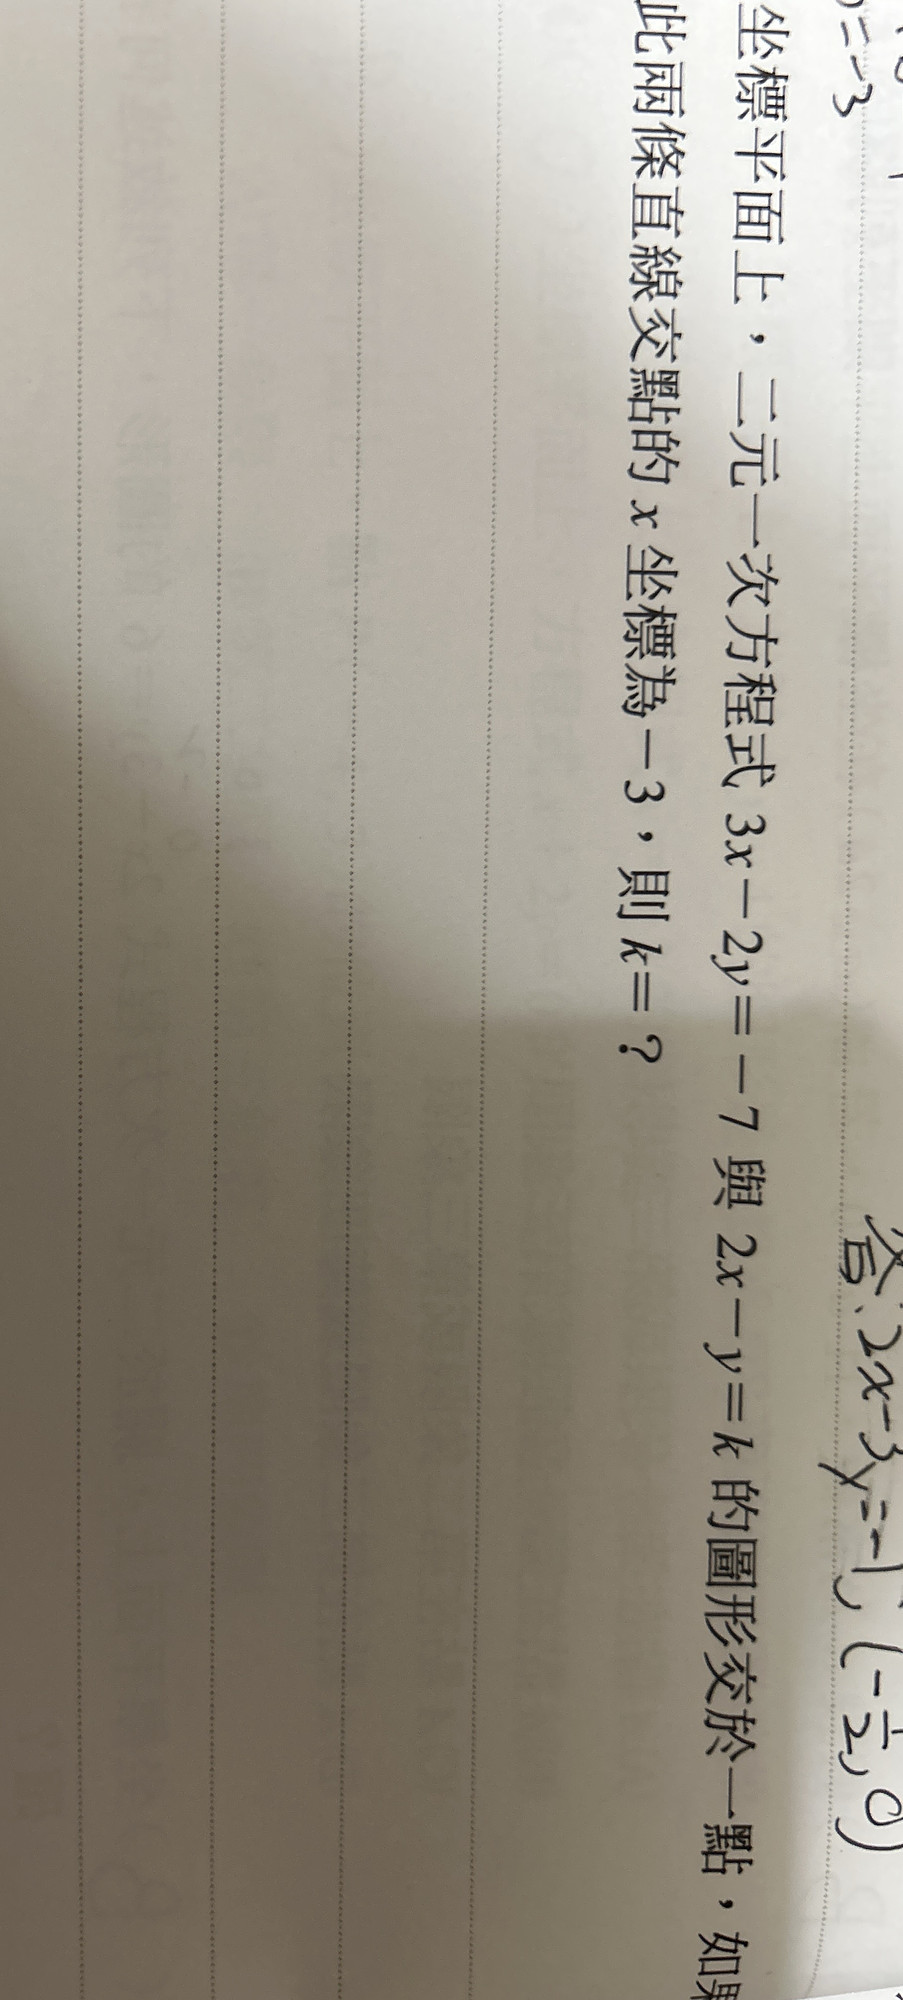 =-3
答:2x-3y=-1,(-1/2,0)
坐標平面上，二元一次方程式 3x－2y＝－7 與 2x－y＝k 的圖形交於一點，如果
此兩條直線交點的 x 坐標為－3，則 k＝？